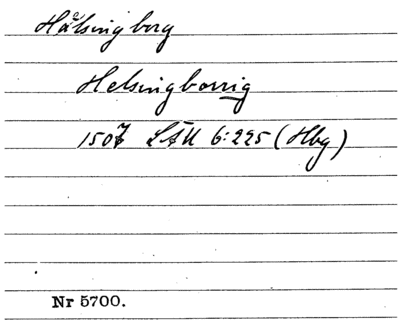 Hälsingborg
Helsingborrig
1507 LÄU 6:225 (Hbg)
Nr 5700.